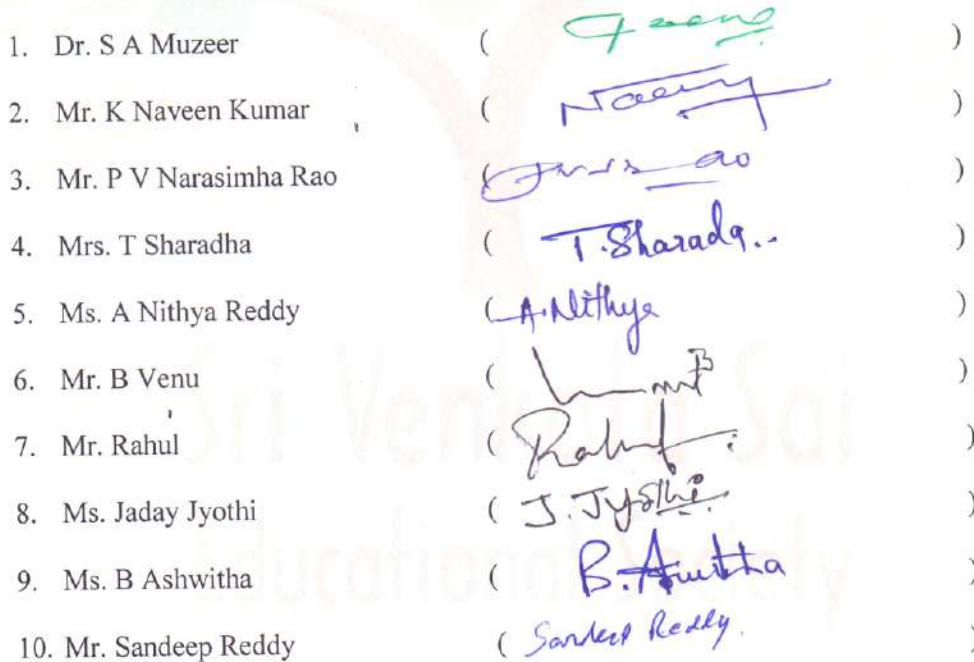 1. Dr. S A Muzeer ( )
2. Mr. K Naveen Kumar ( )
3. Mr. P V Narasimha Rao ( Rao )
4. Mrs. T Sharadha ( T. Sharada.. )
5. Ms. A Nithya Reddy ( A. Nithya )
6. Mr. B Venu ( )
7. Mr. Rahul ( Rahul )
8. Ms. Jaday Jyothi ( J. Jyothi )
9. Ms. B Ashwitha ( B. Aswitha )
10. Mr. Sandeep Reddy ( Sandeep Reddy. )
Sri Venkata Sai
Educational Society